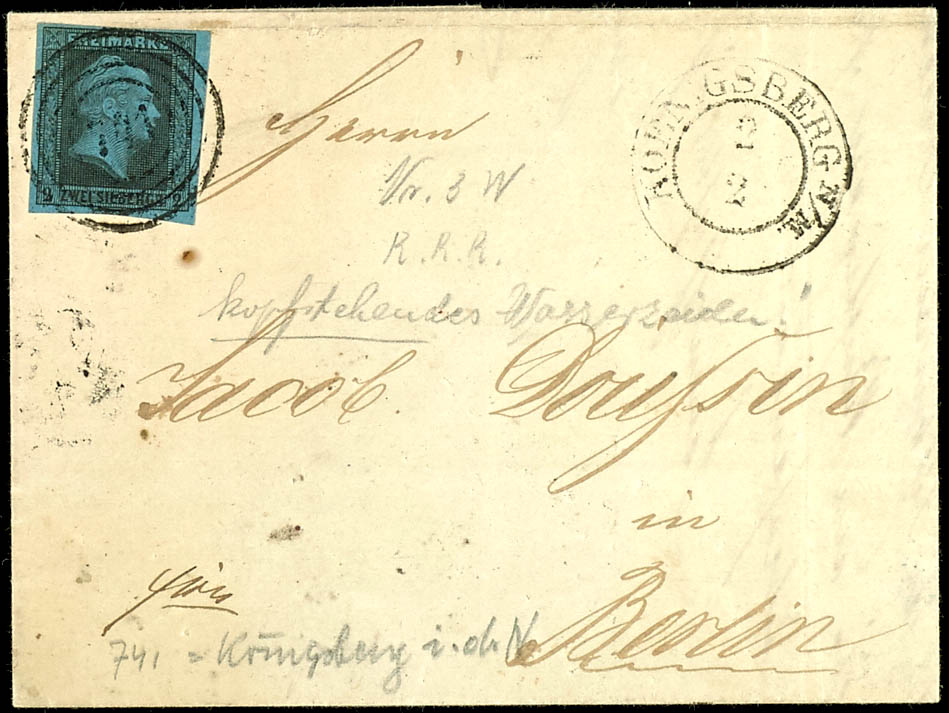 FREIMARKE
2 ZWEI SILBERGR. 2
KOENIGSBERG N/M.
3
2
Herrn
Nr. 3 W
R.R.R.
kopfstehendes Wasserzeichen!
Jacob Doussin
in
frei
Berlin
741 = Königsberg i. d. N